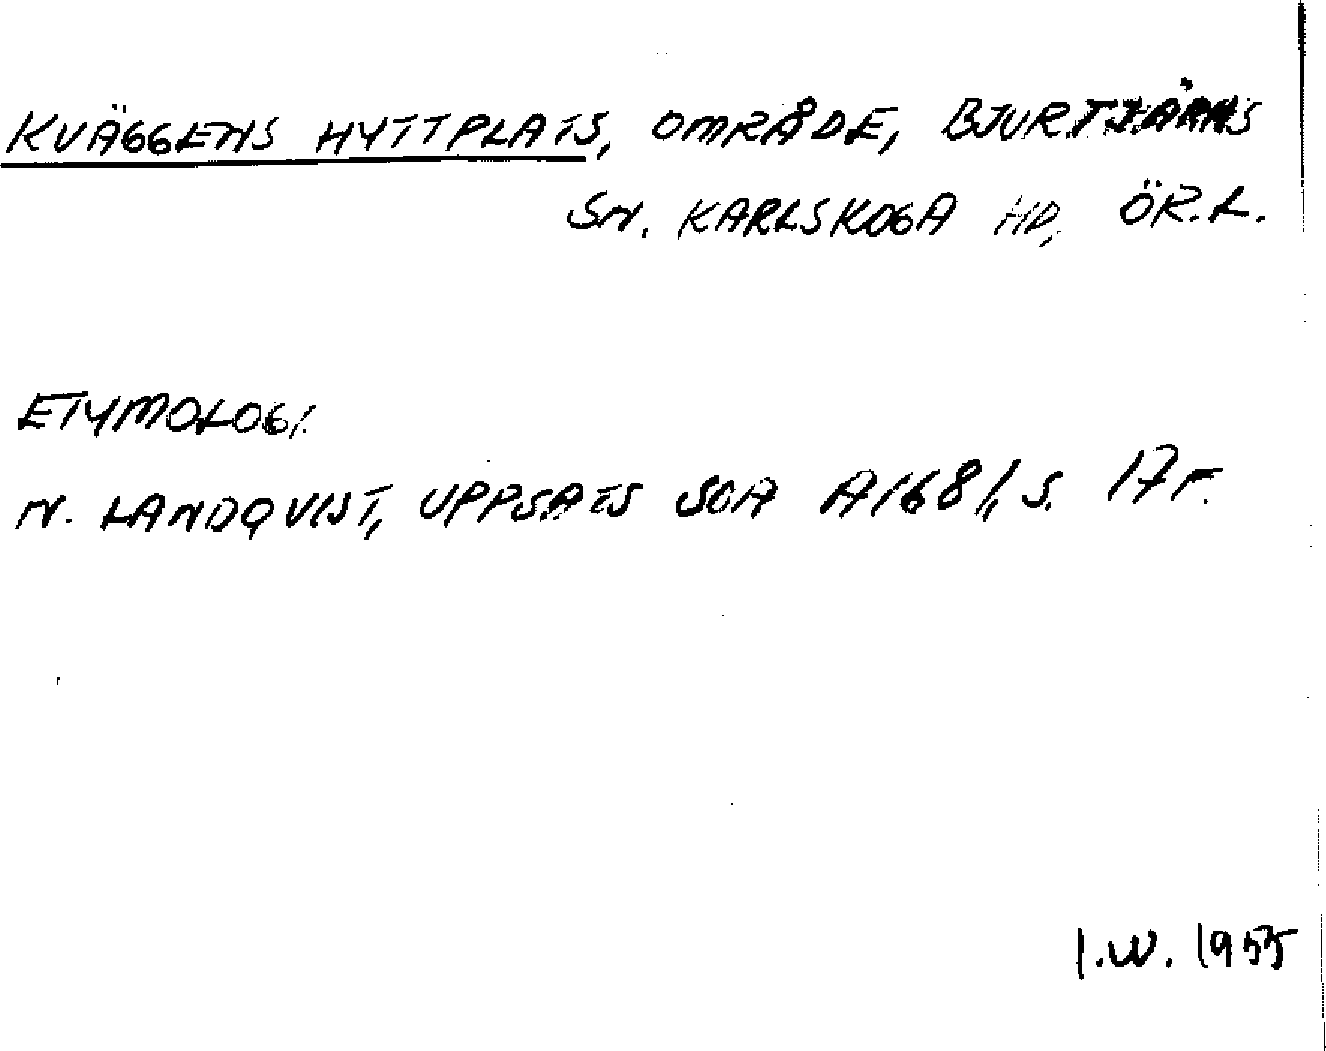 KVÄGGENS HYTTPLATS, OMRÅDE, BJURTJÄRNS
SN. KARLSKOGA HD, ÖR.L.
ETYMOLOGI.
N. LANDQVIST, UPPSATS SOA A1681, S. 17 F.
I.W. 1955